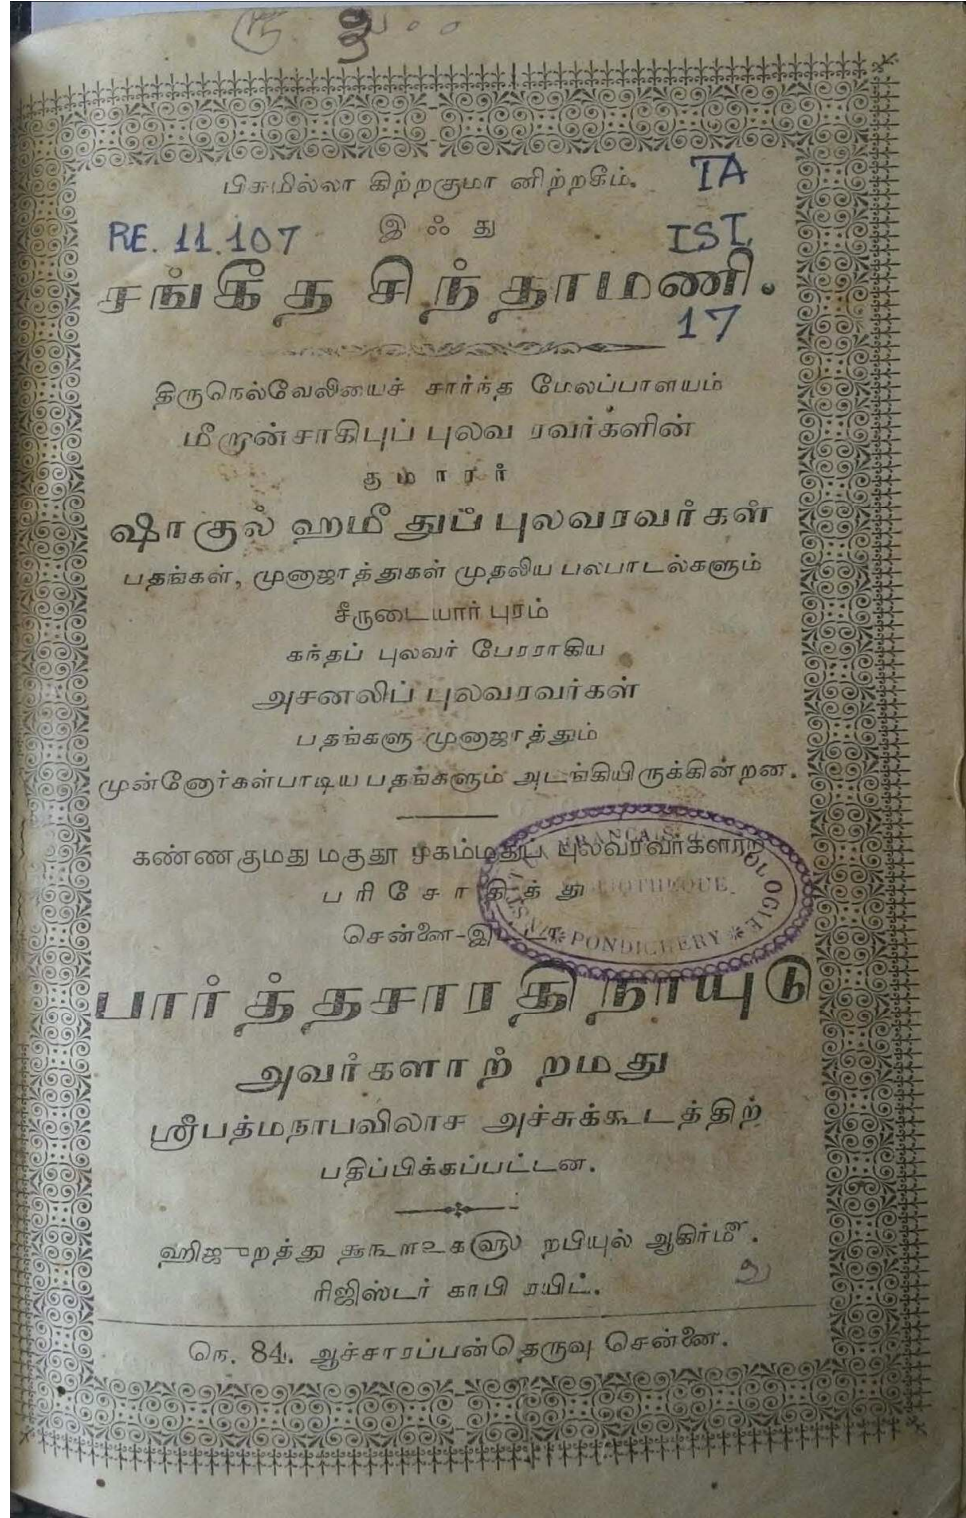 பிசுமில்லா கிற்றகுமா னிற்றகீம்.
TA
RE. 11.107
இஃது
IST
சங்கீத சிந்தாமணி.
17
திருநெல்வேலியைச் சார்ந்த மேலப்பாளயம்
மீறான்சாகிபுப் புலவ ரவர்களின்
குமாரர்
ஷாகுல் ஹமீ துப் புலவரவர்கள்
பதங்கள், முனாஜாத்துகள் முதலிய பலபாடல்களும்
சீருடையார் புரம்
கந்தப் புலவர் பேரராகிய
அசனலிப் புலவரவர்கள்
பதங்களு முனாஜாத்தும்
முன்னோர்கள்பாடிய பதங்களும் அடங்கியிருக்கின்றன.
கண்ணகுமது மகுதூ முகம்மதுப் புலவரவர்களாற்
பரிசோதித்து
சென்னை-
பார்த்தசாரதி நாயுடு
அவர்களாற் றமது
ஸ்ரீபத்மநாபவிலாச அச்சுக்கூடத்திற்
பதிப்பிக்கப்பட்டன.
ஹிஜுறத்து றபியுல் ஆகிர்மீ.
ரிஜிஸ்டர் காபி ரயிட்.
நெ. 84. ஆச்சாரப்பன்தெருவு சென்னை.
FRANÇAIS
PONDICHERY